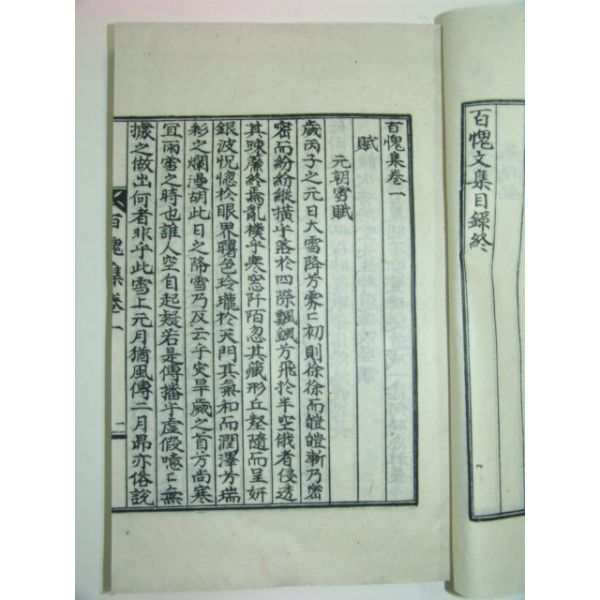 百愧文集目錄終
百愧集卷一
賦
元朝雪賦
歲丙子之元日大雪降芳霁〻初則徐徐而皚皚漸乃密
密而紛紛縱橫乎落於四際飄飄芳飛於半空俄者侵透
其疎簾終焉亂撲乎寒窓阡陌忽其藏形丘壑隨而呈妍
銀波怳惚於眼界曙色玲瓏於天門其氣和而潤澤片瑞
彩之爛漫胡此日之降雪乃反云乎灾旱歲之首方尚寒
宜雨雪之時也誰人空自起疑若是傳播乎虛假噫〻無
據之做出何者非乎此雪上元月猶風傳二月昴亦俗說
百愧集卷一